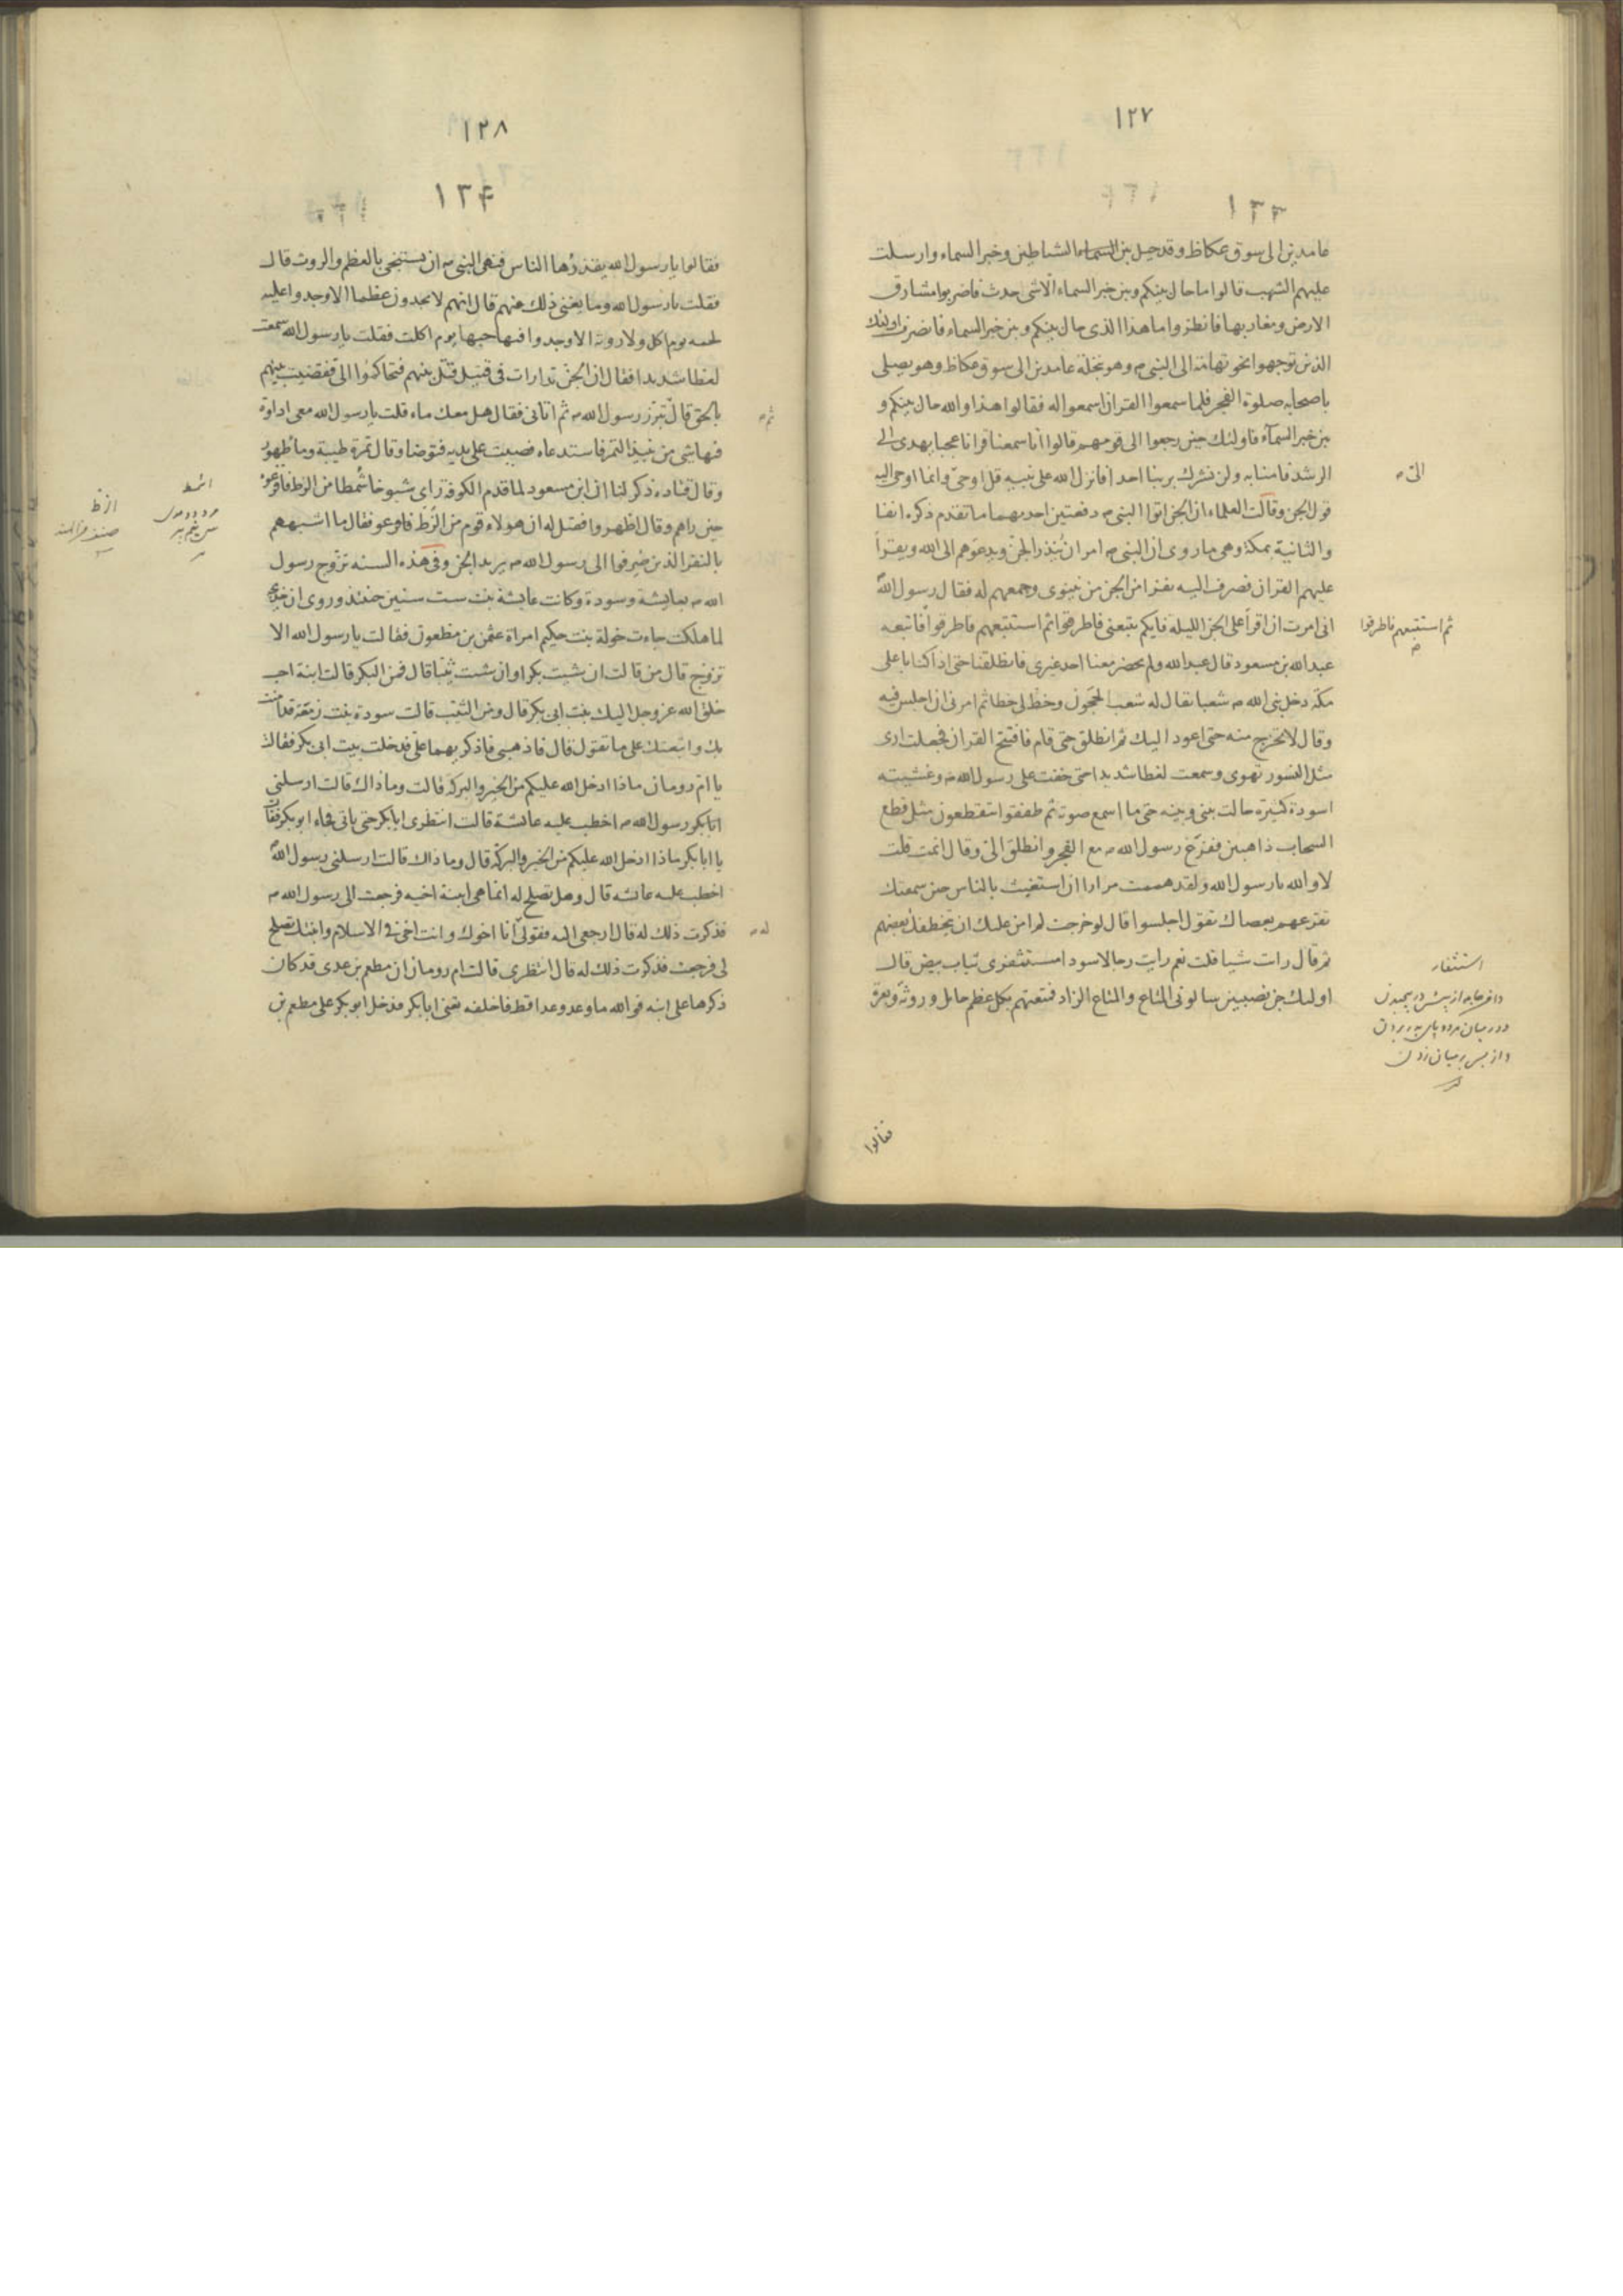 ١٢٧
١٣٣
عامدين الى سوق عكاظ وقد حيل بين السماء الشياطين وخبر السماء وارسلت
عليهم الشهب قالوا ما حال بينكم وبين خبر السماء الا شى حدث فاضربوا مشارق
الارض ومغاربها فانظروا ما هذا الذى حال بينكم وبين خبر السماء فانصرف اولئك
الذين توجهوا نحو تهامة الى النبى م وهو بنخلة عامدين الى سوق عكاظ وهو يصلى
باصحابه صلوة الفجر فلما سمعوا القران اسمعوا له فقالوا هذا والله حال بينكم و
بين خبر السمآء فاولئك حين رجعوا الى قومهم قالوا انا سمعنا قرانا عجبا يهدى الى
الرشد فامنا به ولن نشرك بربنا احدا فانزل الله على نبيه قل اوحىّ وانما اوحى اليه
قول الجن وقالت العلماء ان الجن اتوا النبى م دفعتين احديهما ما تقدم ذكره انفا
والثانية بمكة وهى ما روى ان النبى م امر ان يُنذر الجنّ ويدعوهم الى الله ويقرأ
عليهم القران فصرف اليه نفرا من الجن من نينوى وجمعهم له فقال رسول اللهم
انى امرت ان اقرأ على الجن الليلة فايكم يتبعنى فاطرقوا ثم استتبعهم فاطرقوا فاتبعه
عبد الله بن مسعود قال عبد الله ولم يحضر معنا احد غيرى فانطلقنا حتى اذا كنا باعلى
مكة دخل نبى الله م شعبا يقال له شعب الحجون وخط لى خطا ثم امرنى ان اجلس فيه
وقال لا تخرج منه حتى اعود اليك ثم انطلق حتى قام فافتتح القران فجعلت ارى
مثل النسور تهوى وسمعت لغطا شديدا حتى خفت على رسول الله م وغشيته
اسودة كثيرة حالت بينى وبينه حتى ما اسمع صوته ثم طفقوا ستقطعون مثل قطع
السحاب ذاهبين ففزع رسول الله م مع الفجر وانطلق الىّ وقال انمت قلت
لا والله يا رسول الله ولقد هممت مرارا ان استغيث بالناس حين سمعتك
تقرعهم بعصاك تقول اجلسوا قال لو خرجت لم امن عليك ان يخطفك بعضهم
ثم قال رات شيا قلت نعم رايت رجالا سودا مستثفرى ثياب بيض قال
اولئك جن نصيبين سالونى المتاع والمتاع الزاد فمتعتهم بكل عظم حايل وروثة وبعرة
الىّ م
ثم استتبعهم فاطرقوا
استثفار
فقالوا
١٢٨
١٣۴
فقالوا يا رسول الله يقذرها الناس فنهى النبى م ان يستنجى بالعظم والروث قال
فقلت يا رسول الله وما يغنى ذلك عنهم قال انهم لا يجدون عظما الا وجدوا عليه
لحمه يوم اكل ولا روثه الا وجدوا فيها حبها يوم اكلت فقلت يا رسول الله سمعت
لغطا شديدا فقال ان الجنّ تدارات فى قتيل قتل بينهم فتحاكموا الىّ فقضيت بينهم
بالحق قال تبرز رسول الله م ثم اتانى فقال هل معك ماء قلت يا رسول الله معى اداوة
فيها شى من نبيذ التمر فاستدعاه فصببت على يديه فتوضا وقال تمرة طيبة وما طهور
وقال قتاده ذكر لنا ان ابن مسعود لما قدم الكوفة راى شيوخا شُمطا من الزط فافزعوه
حين راهم وقال اظهروا فقيل له ان هولاء قوم من الزُط فافزعو فقال ما اشبههم
بالنفر الذين صُرفوا الى رسول الله م يريد الجن وفى هذه السنه تزوج رسول
الله م بعايشة وسودة وكانت عايشة بنت ست سنين حينئذ وروى ان خديجة
لما هلكت جاءت خولة بنت حكيم امراة عثمن بن مظعون فقالت يا رسول الله الا
تزوج قال من قالت ان شيت بكرا وان شيت ثيبا قال فمن البكر قالت ابنة احب
خلق الله عز وجل اليك بنت ابى بكر قال ومن الثيب قالت سودة بنت زمعة قد امنت
بك واتبعتك على ما تقول قال فاذهبى فاذكريهما علىّ فدخلت بيت ابى بكر فقالت
يا امّ رومان ماذا ادخل الله عليكم من الخير والبركة قالت وما ذاك قالت ارسلنى
ابا بكر رسول الله م اخطب عليه عائشة قالت انتظرى ابا بكر حتى ياتى فجاء ابو بكر فقالت
يا ابا بكر ماذا ادخل الله عليكم من الخير والبركة قال وما ذاك قالت ارسلنى رسول اللهم
اخطب عليه عائشه قال وهل تصلح له انما هى ابنة اخيه فرجعت الى رسول الله م
فذكرت ذلك له قال ارجعى اليه فقولى انا اخوك وانت اخى فى الاسلام وابنتك تصلح
لى فرجعت فذكرت ذلك له قال انتظرى قالت ام رومان ان مطعم بن عدى قد كان
ذكرها على ابنه فوالله ما وعد وعدا قط فاخلفه تعنى ابا بكر فدخل ابو بكر على مطعم بن
ثم م
له م